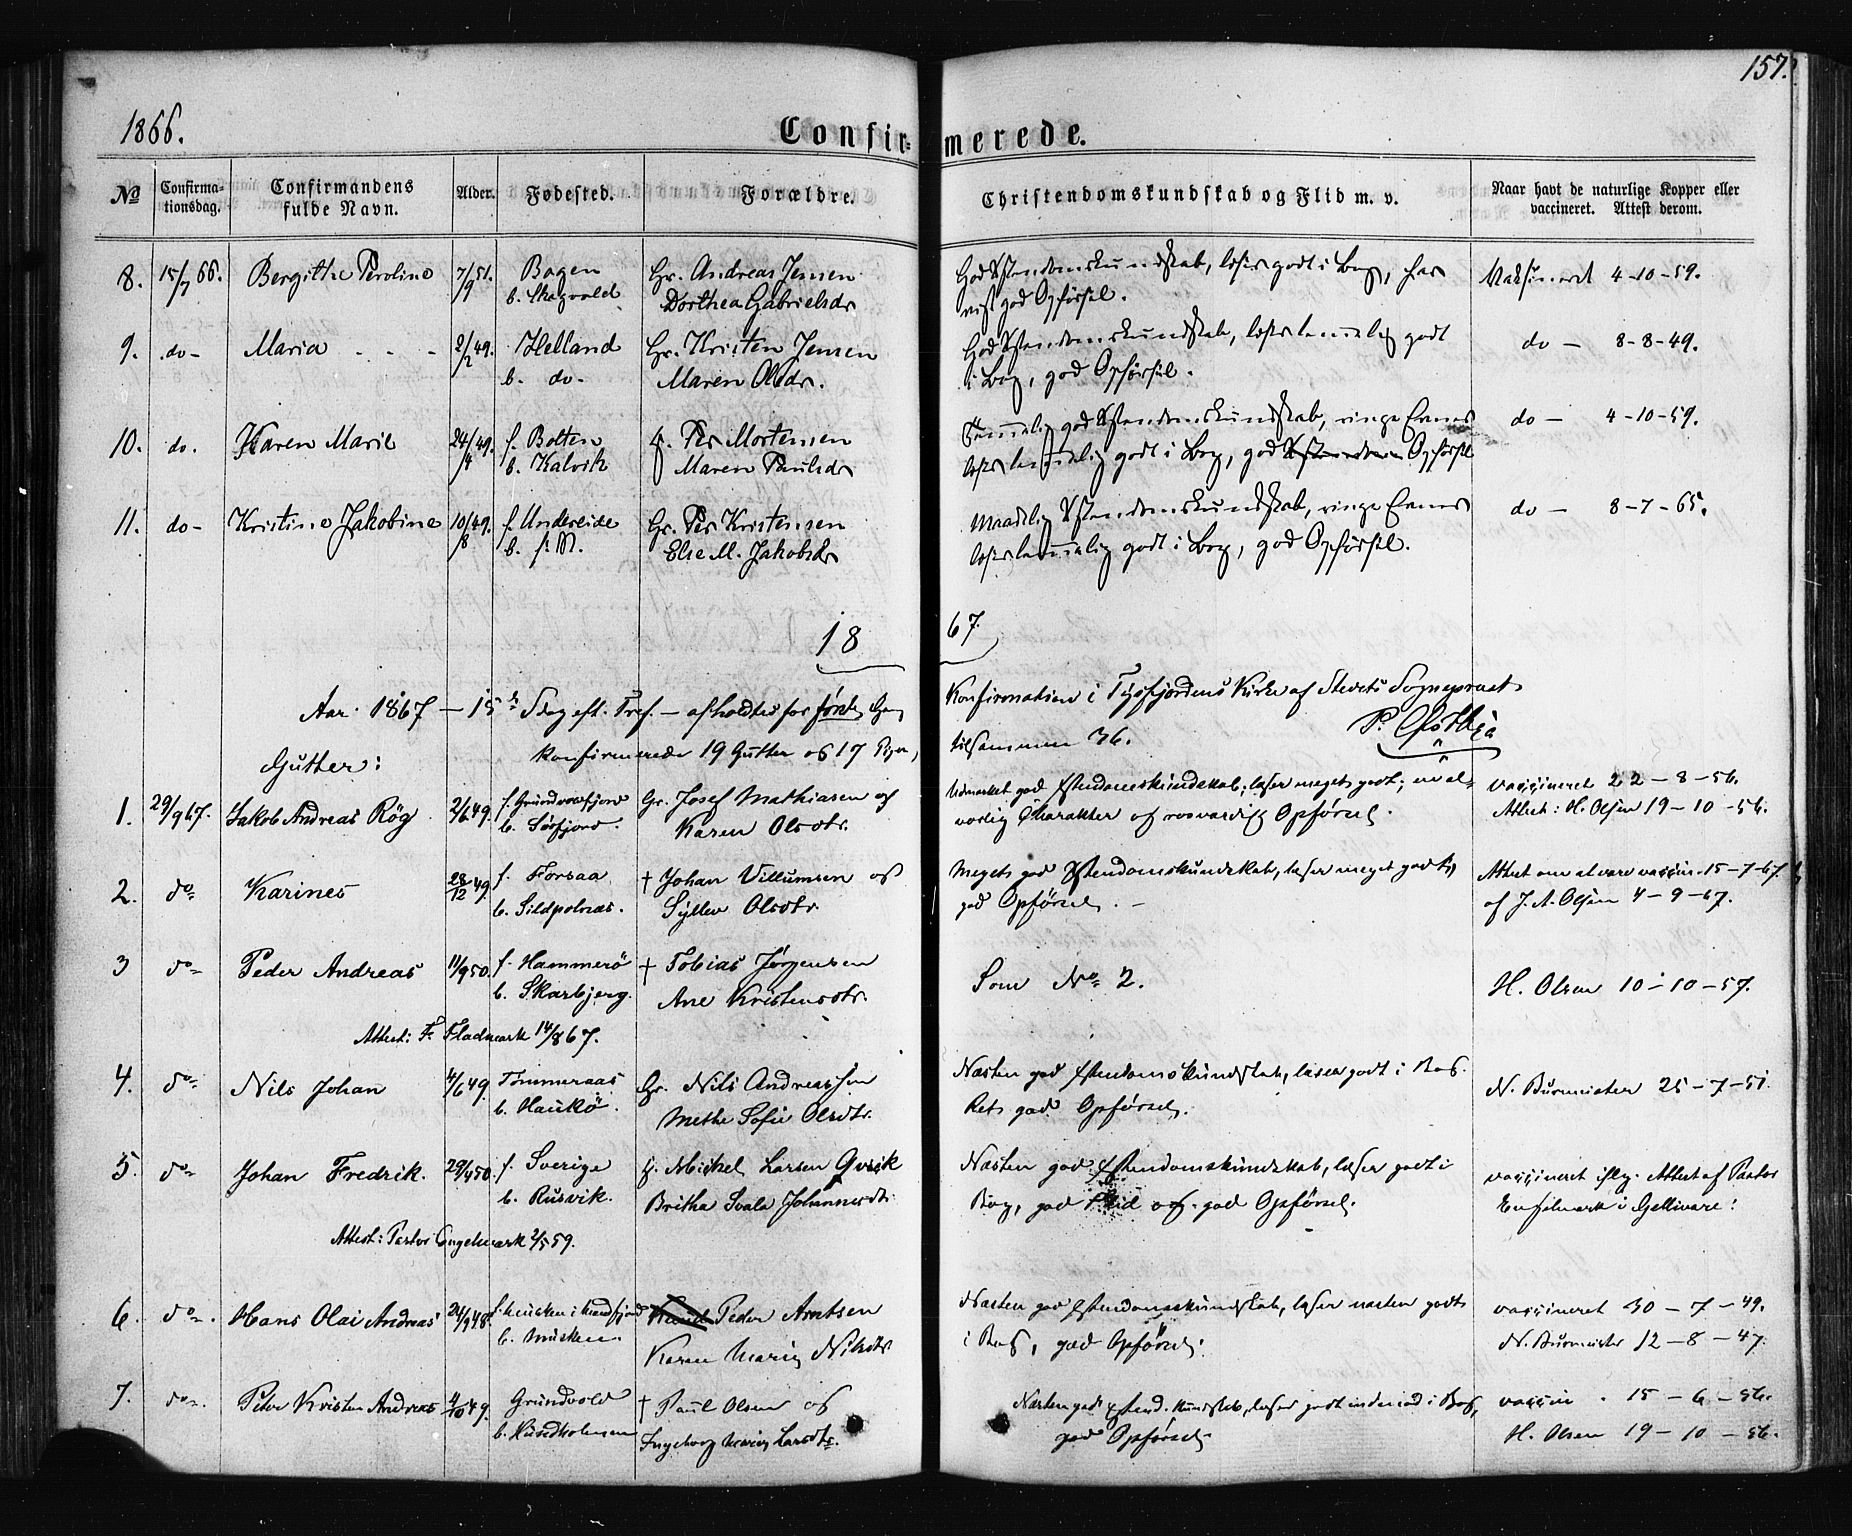 157.
1866.
Confir= merede.
No
Confirma-
tionsdag.
Confirmandens
fulde Navn.
Alder.
Fødested.
Forældre.
Christendomskundskab og Flid m. v.
Naar havt de naturlige Kopper eller
vaccineret. Attest derom.
8. 15/7 66. Bergithe Peroline 7/9 51. Bogen Gr. Andreas Jensen God Xstendomskundskab, læser godt i Bog, har Vaksineret 4-10-59.
b. Skogvold Dorthea Gabrielsdr vist god Opførsel.
9. do- Maria - - - 2/2 49. Helland Gr. Kristen Jensen God Xstendomskundskab, læser temmelig godt do — 8-8-49.
b. do- Maren Olsdr. i Bog, god Opførsel.
10. do. Karen Marie 24/4 49. f. Botten Per Mortensen Temmelig god Xstendomskundskab, ringe Evner do — 4-10-59.
b. Kalvik Maren Paulsdr læser temmelig godt i Bog, god Opførsel
11. do- Kristine Jakobine 10/8 49. f. Undereide Gr. Per Kristensen Maadelig Xstendomskundskab, ringe Evner do — 8-7-65.
b. f. M. Else M. Jakobsdr læser temmelig godt i Bog, god Opførsel.
18 67.
Aar 1867 — 15de Sdag eft. Tref. — afholdtes for første Gang Konfirmation i Tysfjordens Kirke af Stedets Sognepræst
Gutter: konfirmerede 19 Gutter og 17 Piger, tilsammen 36.
1. 29/9 67. Jakob Andreas Røg 2/6 49. f. Grundvasfjord Gr. Josef Mathiasen og Udmærket god Xstendomskundskab; læser meget godt; en al- vaccineret 22-8-56.
b. Sørfjord. Karen Olsdtr. vorlig Charakter og rosværdig Opførsel. Attest: H. Olsen 19-10-56.
2. do Karines 28/12 49. f. Forsaa † Johan Villumsen og Meget god Xstendomskundskab, læser meget godt, Attest om at være vaccin. 15-7-67.
b. Sildpolnæs. Olsdtr. god Opførsel. - af J. A. Olsen 4-9-67.
3 do Peder Andreas 11/9 50. f. Hammerö † Tobias Jørgensen Som No 2. H. Olsen 10-10-57.
b. Skarbjerg. Ane Kristensdtr.
Attest: F. Fladmark 14/8 67.
4. do Nils Johan 4/6 49. Tømmeraas Gr. Nils Andreassen Næsten god Xstendomskundskab, læser godt i Bog. N. Burmeister 25-7-51.
b. Haukö. Methe Sofie Olsdtr. Ret god Opførsel.
5. do Johan Fredrik. 29/4 50. f. Sverige Mickel Larsen Qvick Næsten god Xstendomskundskab, læser godt i vaccineret iflg. Attest af Pastor
b. Rusvik. Britha Johannesdtr. Bog, god Flid og god Opførsel. i Gellivare.
Attest: Pastor Engelmark 2/5 59.
6. do. Hans Olai Andreas 24/9 48. Peder Arntsen Næsten god Xstendomskundskab, læser næsten godt vaccineret 30-7-49.
b. Musken. Karen Maria Nilsdtr i Bog, god Opførsel. N. Burmeister 12-8-47.
7. do. Peder Kristen Andreas 4/10 49. Grundvold † Paul Olsen og Næsten god Xstend. kundskab, læser godt i Bog, vaccin. 15-6-56.
b. Hundholmen Ingeborg Larsdtr. god Opførsel. H. Olsen 19-10-56.